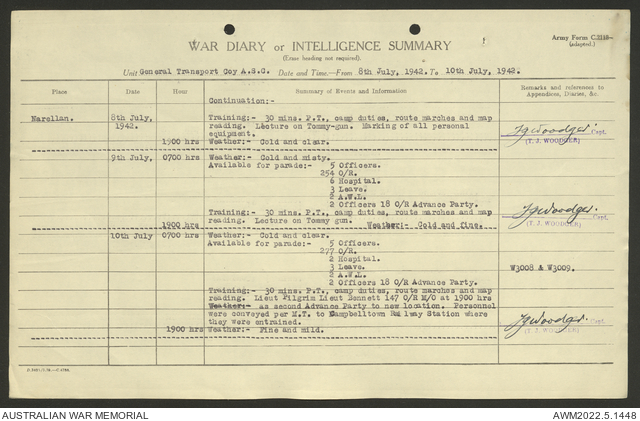 Army Form C.2118—
(adapted.)
WAR DIARY or INTELLIGENCE SUMMARY
(Erase heading not required).
Unit General Transport Coy A.S.C. Date and Time.—From 8th July, 1942. To 10th July, 1942.
Place Date Hour Summary of Events and Information Remarks and references to Appendices, Diaries, &c.
Continuation:-
Narellan. 8th July, 1942. Training:- 30 mins. P.T., camp duties, route marches and map
reading. Lecture on Tommy-gun. Marking of all personal
equipment.
TJWoodger. Capt.
(T. J. WOODGER)
1900 hrs Weather:- Cold and clear.
9th July, 0700 hrs Weather:- Cold and misty.
Available for parade:- 5 Officers.
254 O/R.
6 Hospital.
3 Leave.
2 A.W.L.
2 Officers 18 O/R Advance Party.
Training:- 30 mins. P.T., camp duties, route marches and map
reading. Lecture on Tommy gun.
TJWoodger. Capt.
(T. J. WOODGER)
1900 hrs Weather:- Cold and fine.
10th July 0700 hrs Weather:- Cold and clear.
Available for parade:- 5 Officers.
277 O/R.
2 Hospital.
3 Leave.
2 A.W.L.
2 Officers 18 O/R Advance Party.
W3008 & W3009.
Training:- 30 mins. P.T., camp duties, route marches and map
reading. Lieut Pilgrim Lieut Bennett 147 O/R M/O at 1900 hrs
Weather:- as second Advance Party to new location. Personnel
were conveyed per M.T. to Campbelltown Railway Station where
they were entrained.
TJWoodger. Capt.
(T. J. WOODGER)
1900 hrs Weather:- Fine and mild.
AUSTRALIAN WAR MEMORIAL
AWM2022.5.1448